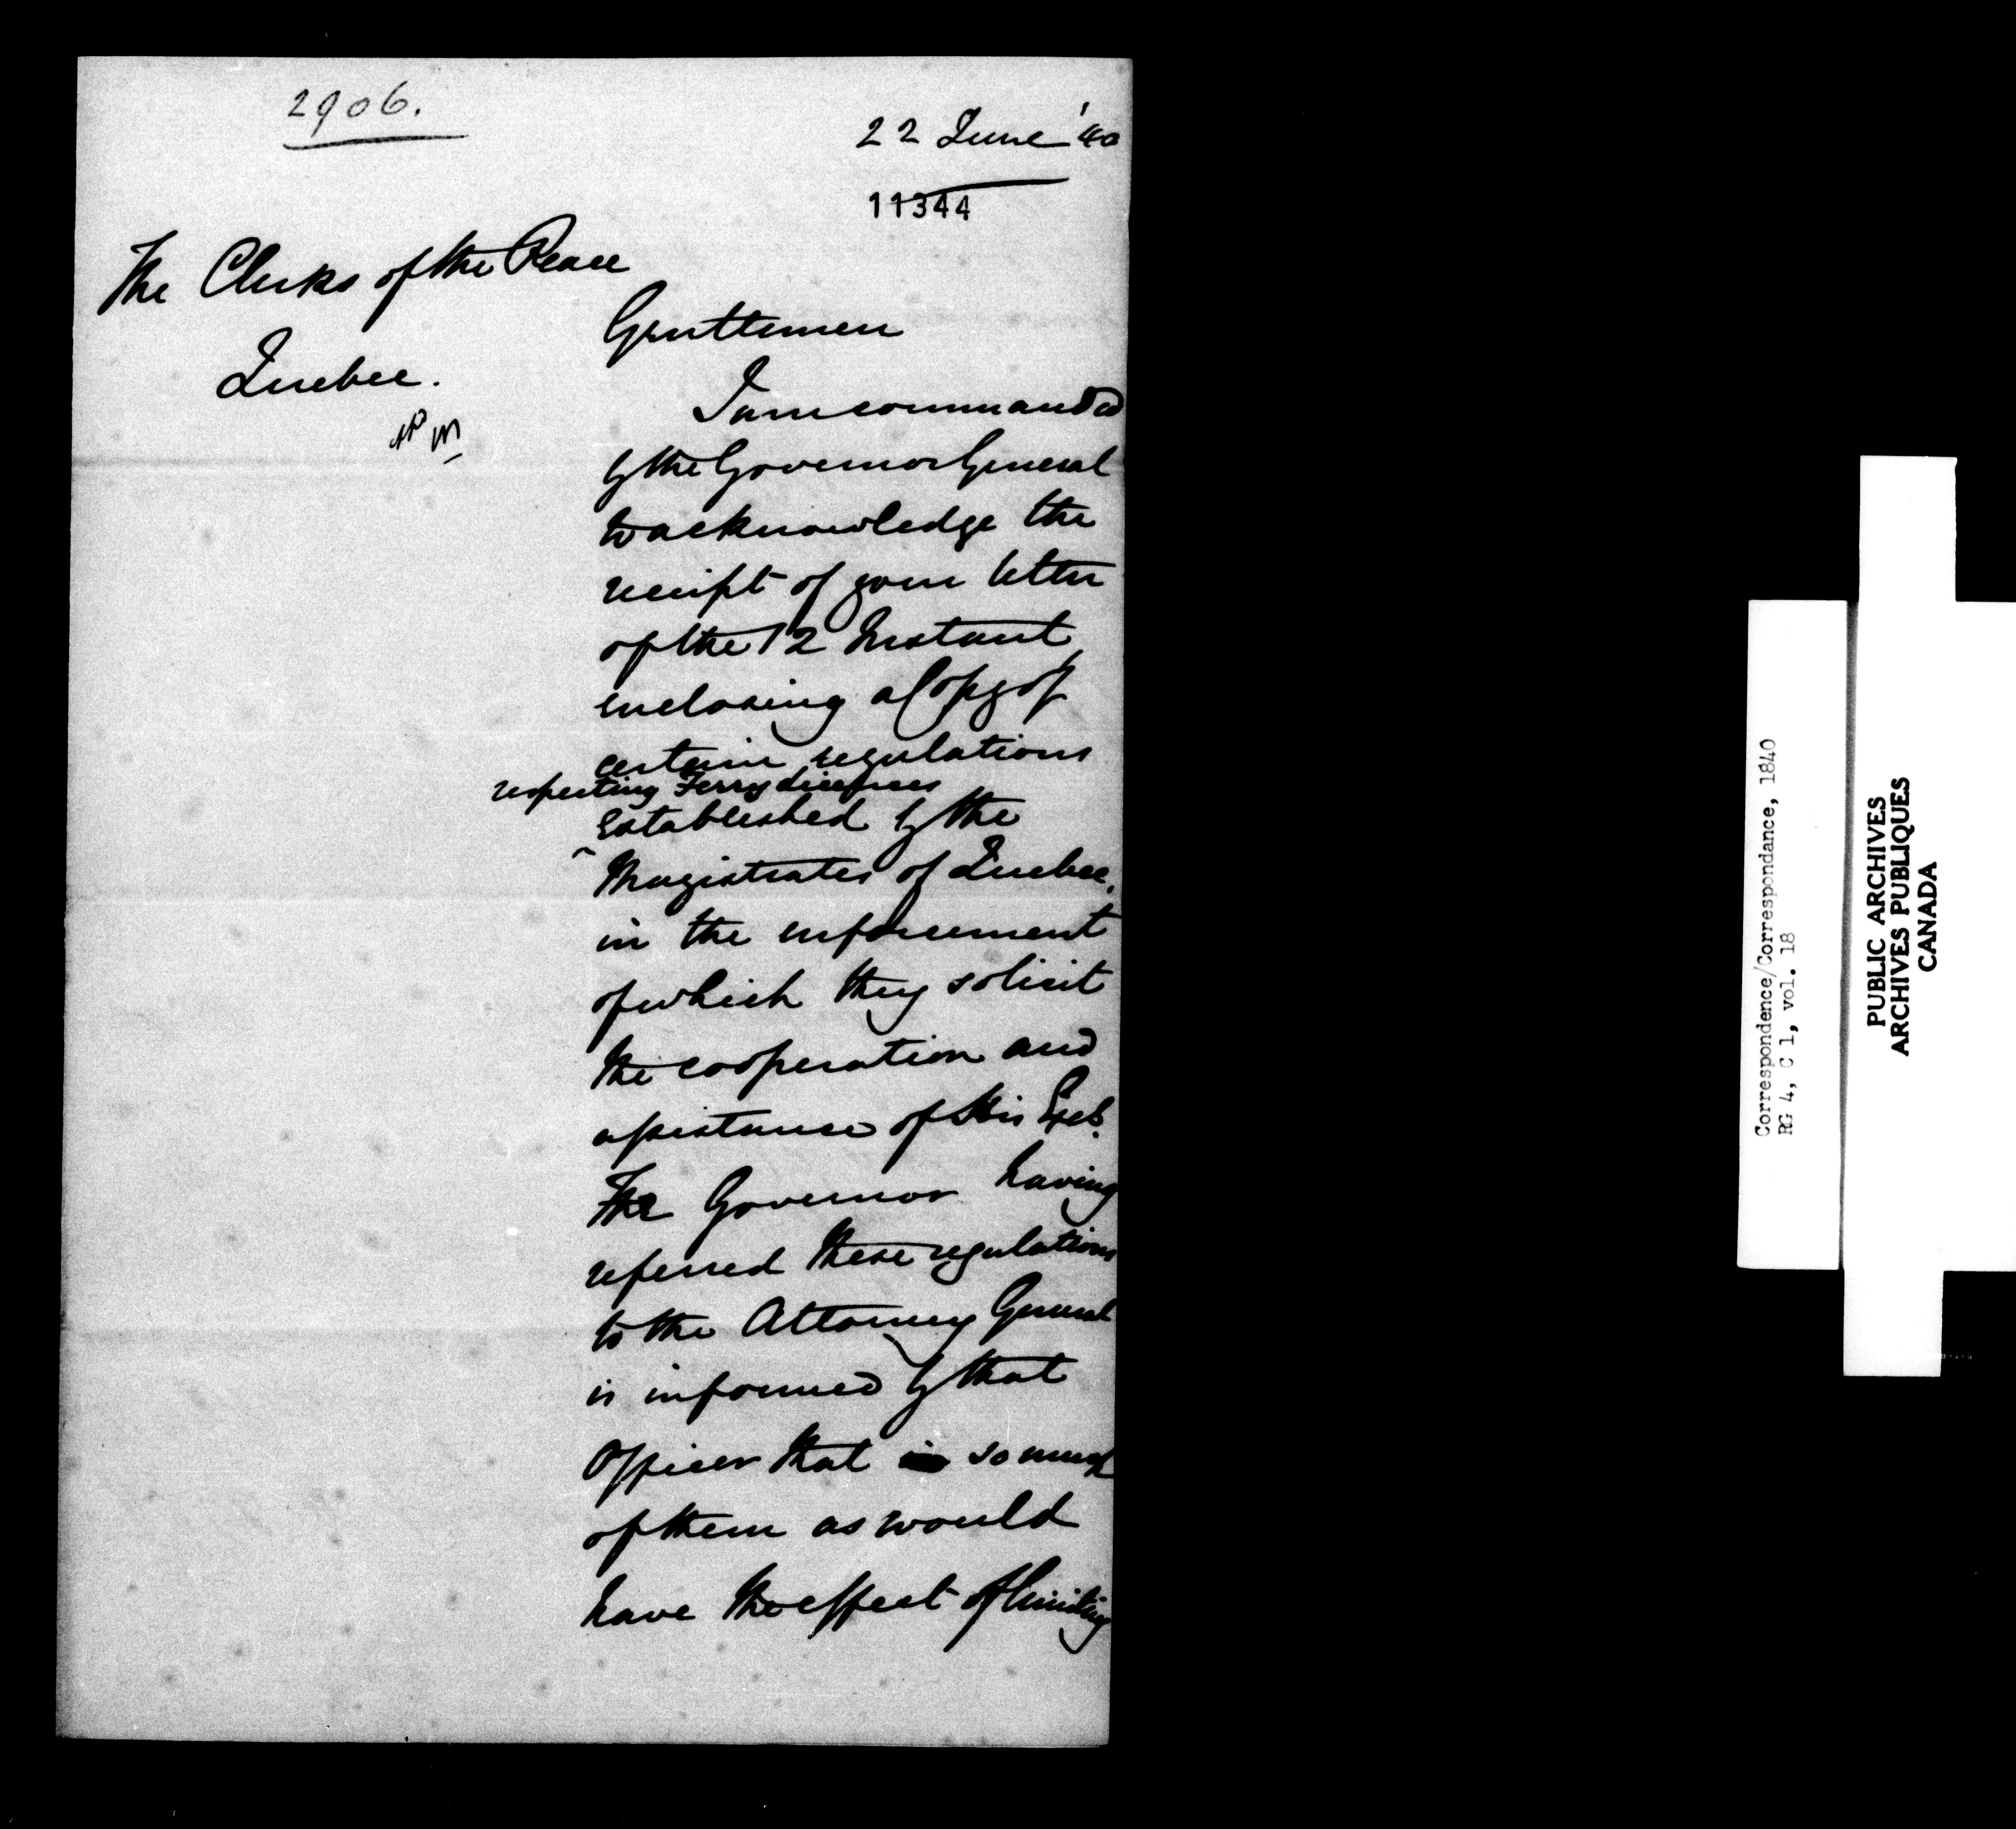 2906.
22 June '40
11344
The Clerks of the Peace
Quebec.
Gentlemen
I am commanded
by the Governor General
to acknowledge the
receipt of your letter
of the 12 Instant
enclosing a Copy of
certain regulations
respecting Ferry licenses
established by the
Magistrates of Quebec,
in the enforcement
of which they solicit
the cooperation and
assistance of His Exc?.
The Governor having
referred these regulations
to the Attorney General
is informed by that
Officer that so much
of them as would
have the effect of limiting
Correspondence/Correspondance, 1840
RG 4, C 1, vol. 18
PUBLIC ARCHIVES
ARCHIVES PUBLIQUES
CANADA